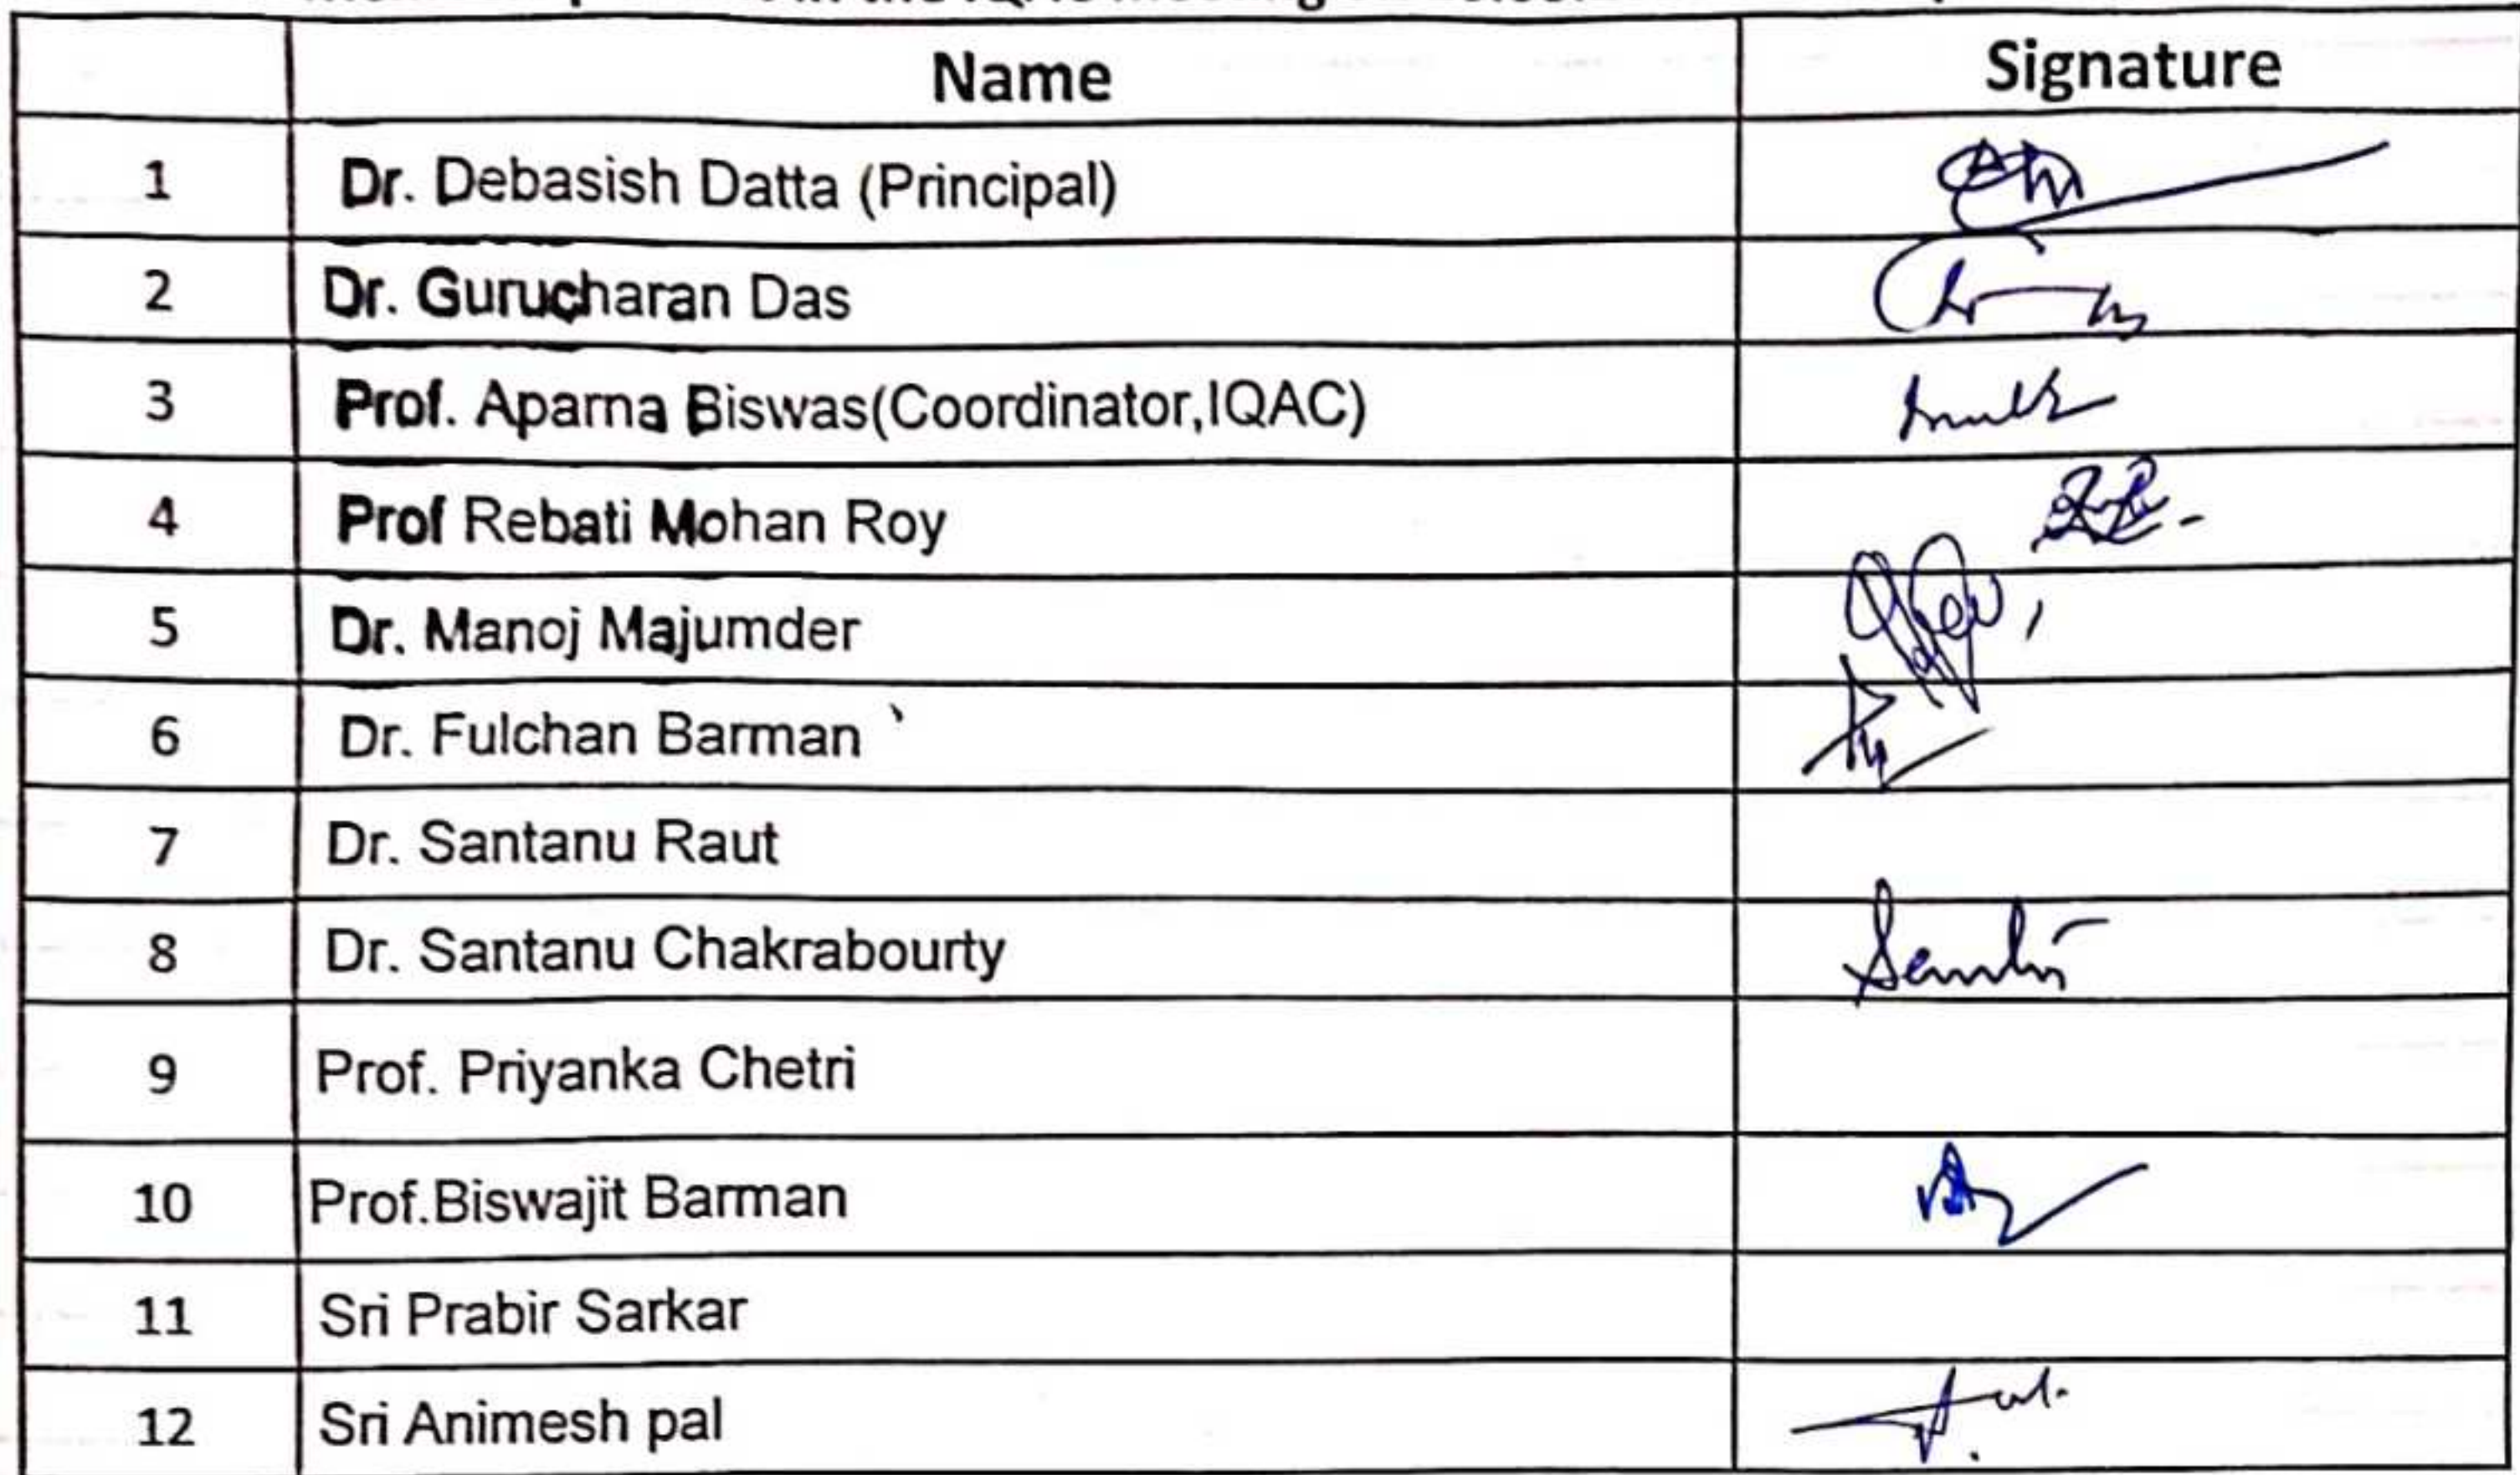 in the IQAC meeting
Name Signature
1 Dr. Debasish Datta (Principal)
2 Dr. Gurucharan Das
3 Prof. Aparna Biswas(Coordinator,IQAC)
4 Prof Rebati Mohan Roy
5 Dr. Manoj Majumder
6 Dr. Fulchan Barman
7 Dr. Santanu Raut
8 Dr. Santanu Chakrabourty
9 Prof. Priyanka Chetri
10 Prof.Biswajit Barman
11 Sri Prabir Sarkar
12 Sri Animesh pal